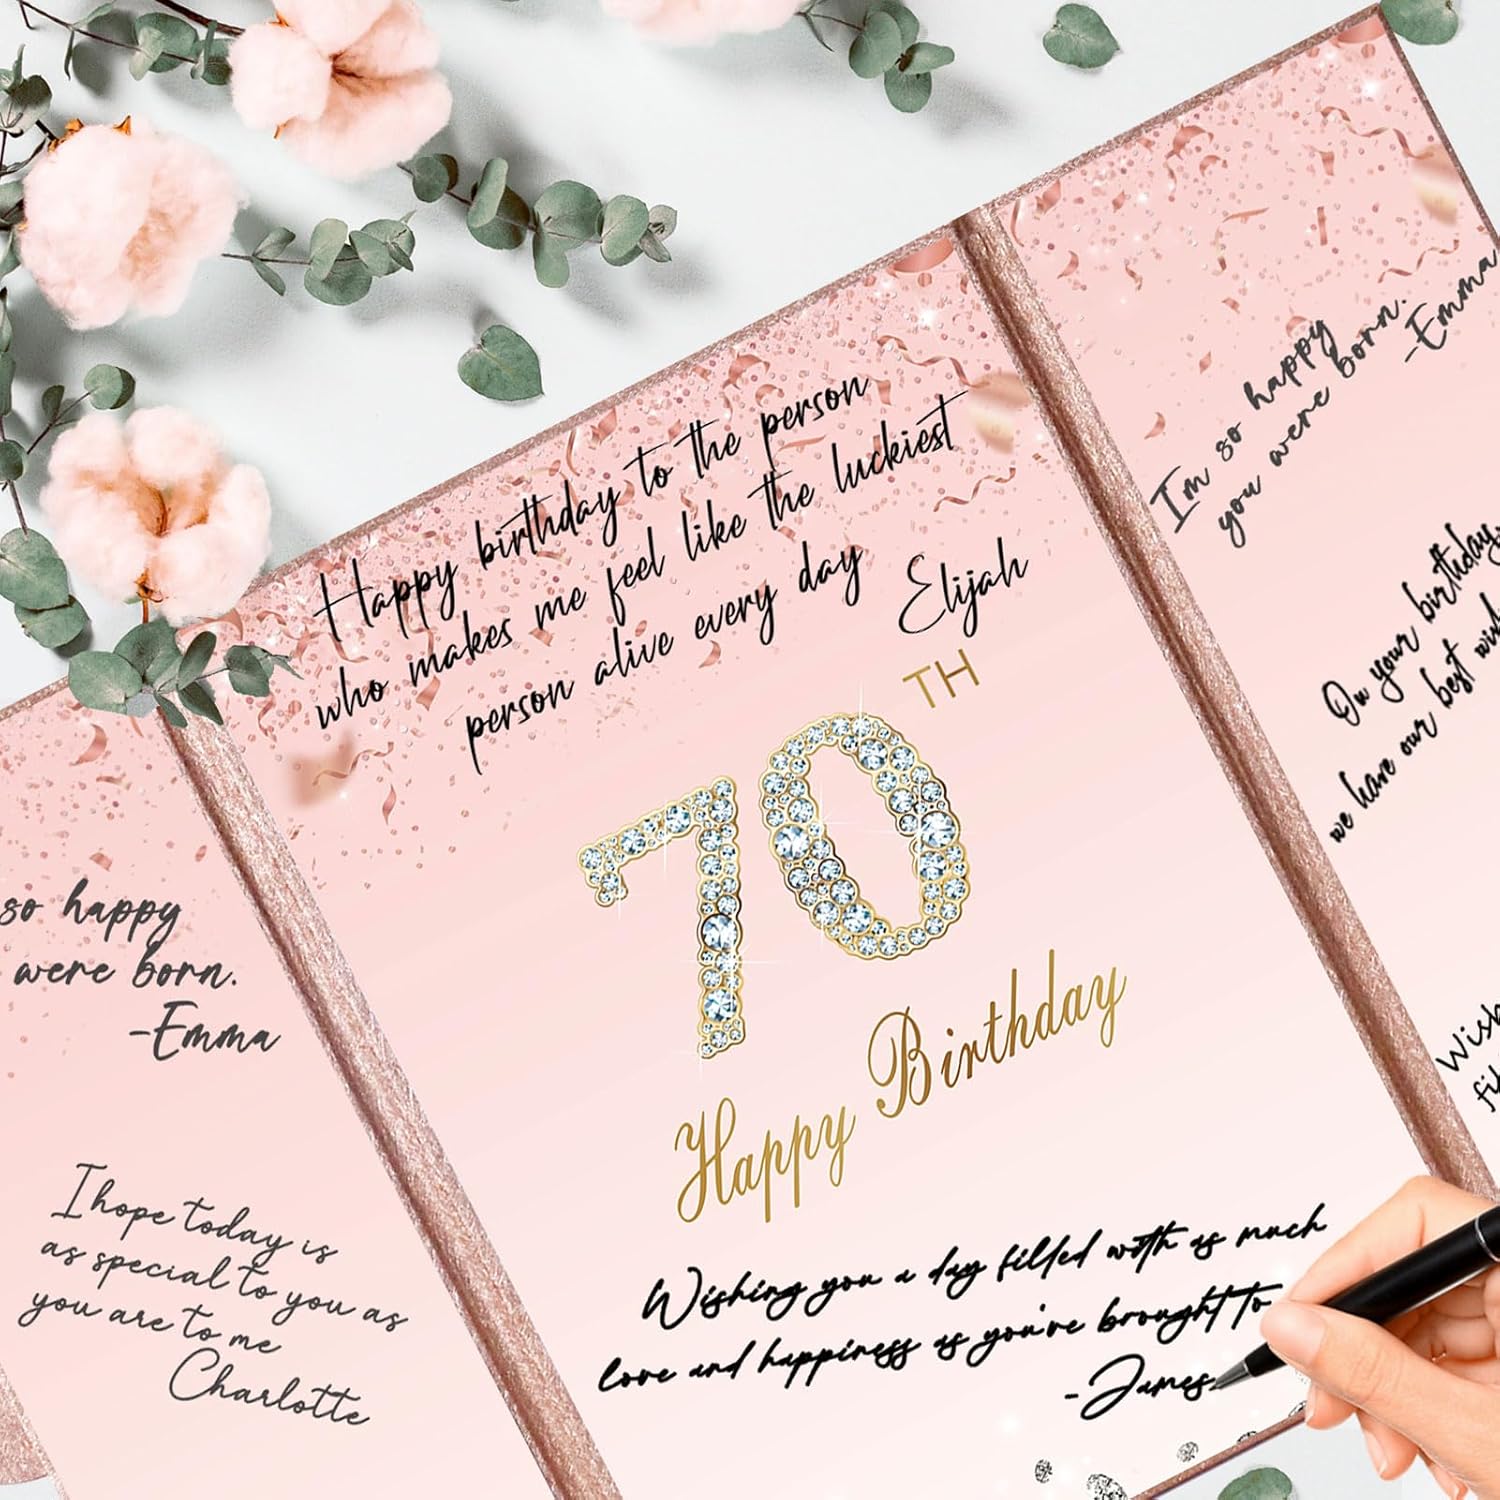 Happy birthday to the person
who makes me feel like the luckiest
person alive every day
Elijah
70
TH
Happy Birthday
Wishing you a day filled with as much
love and happiness as you've brought to
-James
so happy
were born.
-Emma
I hope today is
as special to you as
you are to me
Charlotte
I'm so happy
you were born.
-Emma
On your birthday,
we have our best